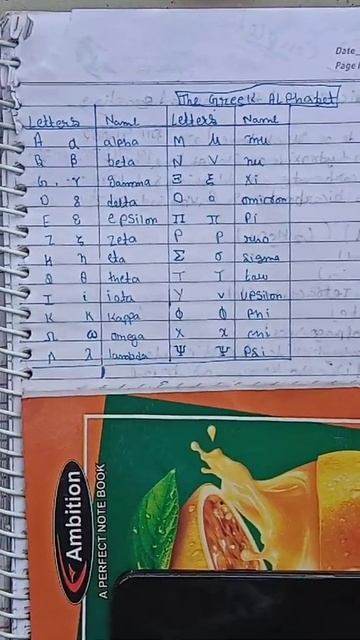 Date_
Page
The Greek Alphabet
Letters Name Letters Name
A α alpha M μ mu
B β beta N ν nu
G γ gamma Ξ ξ xi
D δ delta O o omicron
E ε epsilon Π π Pi
Z ζ zeta P ρ rho
H η eta Σ σ sigma
θ θ theta T T tau
I i iota Y v upsilon
K K kappa ϕ ϕ phi
Ω ω omega X x chi
Λ λ lambda Ψ Ψ Psi
Ambition
A PERFECT NOTE BOOK